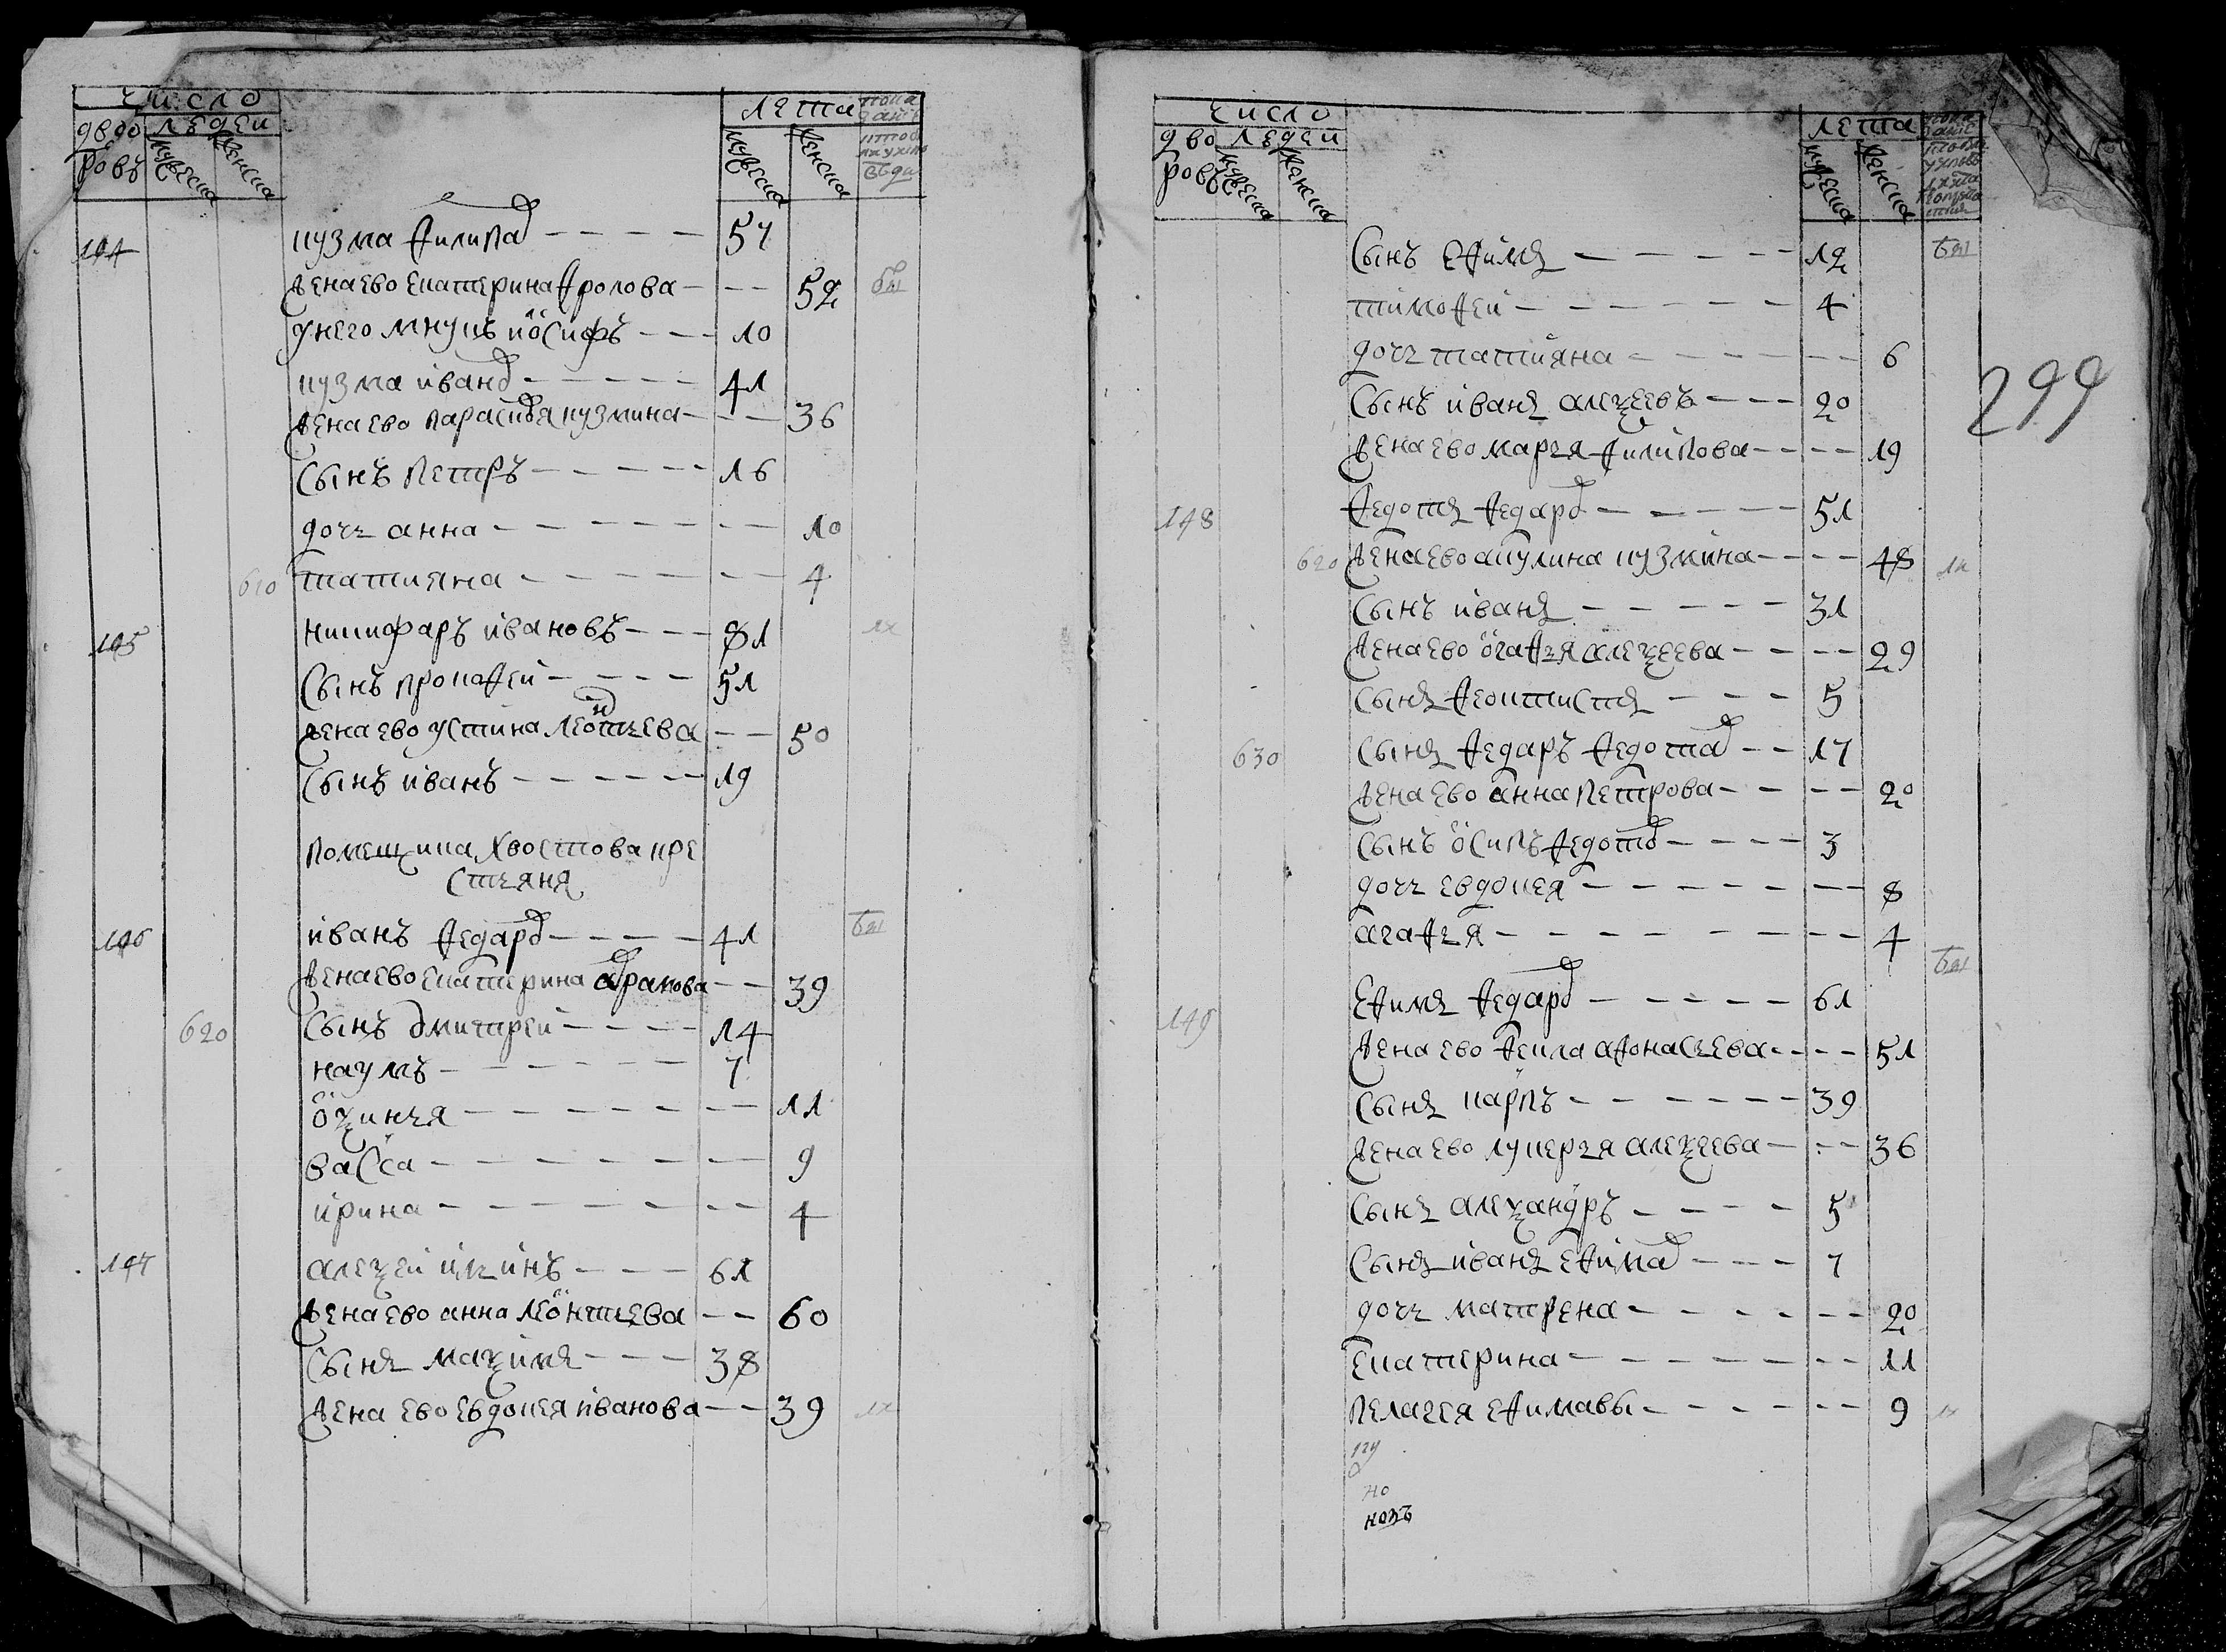 число
лета
дво
ровъ
людеи
мужеска
женска
мужеска
женска
194 кузма филипов 57
жена ево екатерина фролова 52
у него внукъ иосифъ 10
кузма иванов 41
жена ево парасковя кузмина 36
сынъ петръ 16
дочь анна 10
610 татияна 4
195 никифаръ ивановъ 81
сынъ прокафеи 51
жена ево устина леонтьева 50
сынъ иванъ 19
помещика хвостова кре
стьяня
196 иванъ федаров 41
жена ево екатерина абрамова 39
620 сынъ дмитреи 14
наумъ 7
оѯинья 11
васса 9
ирина 4
197 алеѯеи илинъ 61
жена ево анна леонтьева 60
сынъ маѯимъ 38
жена ево евдокея иванова 39
число
лета
дво
ровъ
людеи
мужеска
женска
мужеска
женска
299
сынъ ефимъ 12
тимофеи 4
дочь татияна 6
сынъ иванъ алеѯеевъ 20
жена ево марья филипова 19
198 федотъ федаров 51
620 жена ево акулина кузмина 48
сынъ иванъ 31
жена ево огафья алеѯеева 29
сынъ феоктистъ 5
630 сынъ федаръ федотов 17
жена ево анна петрова 20
сынъ осипъ федотов 3
дочь евдокея 8
агафья 4
199 ефимъ федаров 61
жена ево фекла афонасьева 51
сынъ карпъ 39
жена ево лукерья алеѯеева 36
сынъ алеѯандръ 5
сынъ иванъ ефимов 7
дочь матрена 20
екатерина 11
пелагея ефимавы 9
но